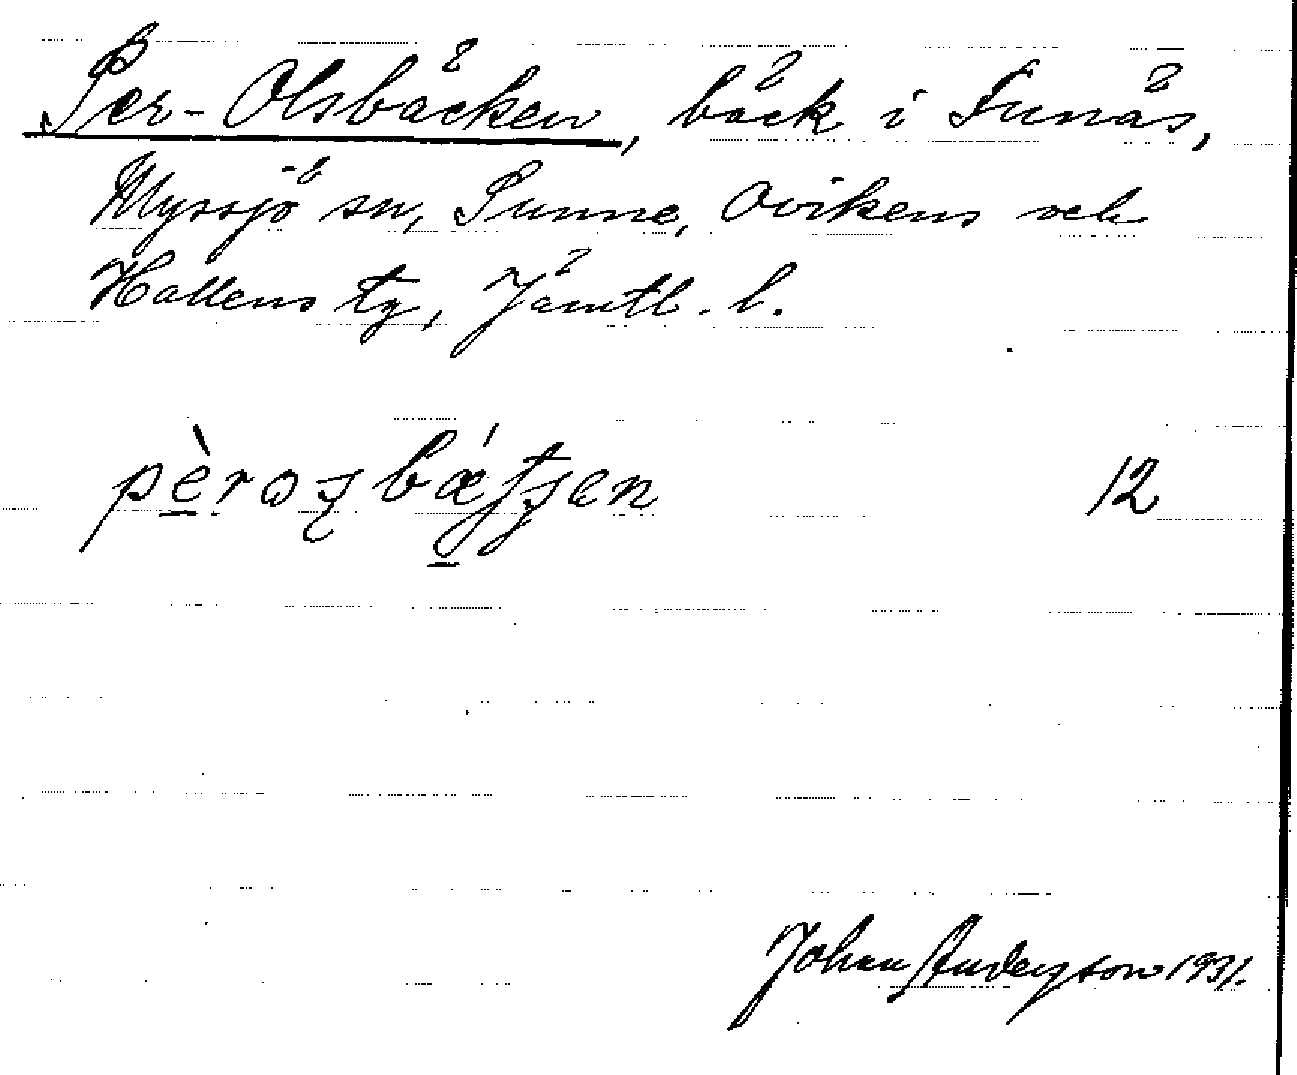 Per-Olsbäcken, bäck i Funäs,
Myssjö sn, Sunne, Ovikens och
Hallens tg, Jämtl. l.
12
Johan Anderson 1931.